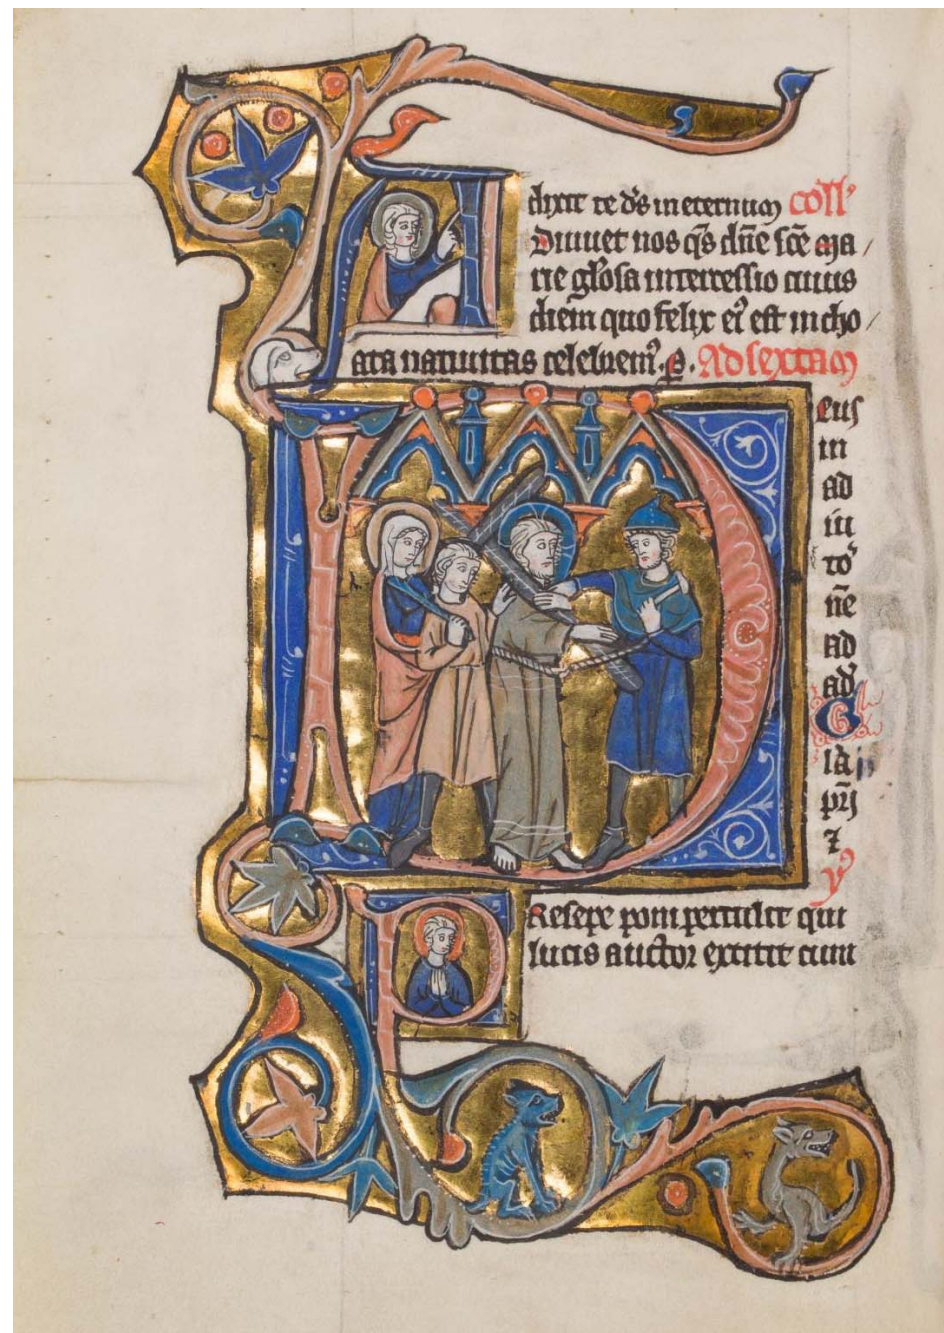 dixit te ds in eternum coll'
A Diuuet nos qs dne sce ma/
rie glosa intercessio cuius
diem quo felix ei' est incho/
ata natiuitas celebrem'. P. Ad sextam
D eus
in
ad
iu
to
ne
ad
ad
G
la
pri
z
V
P Resepe pom pertulit qui
lucis auctor extitit cum